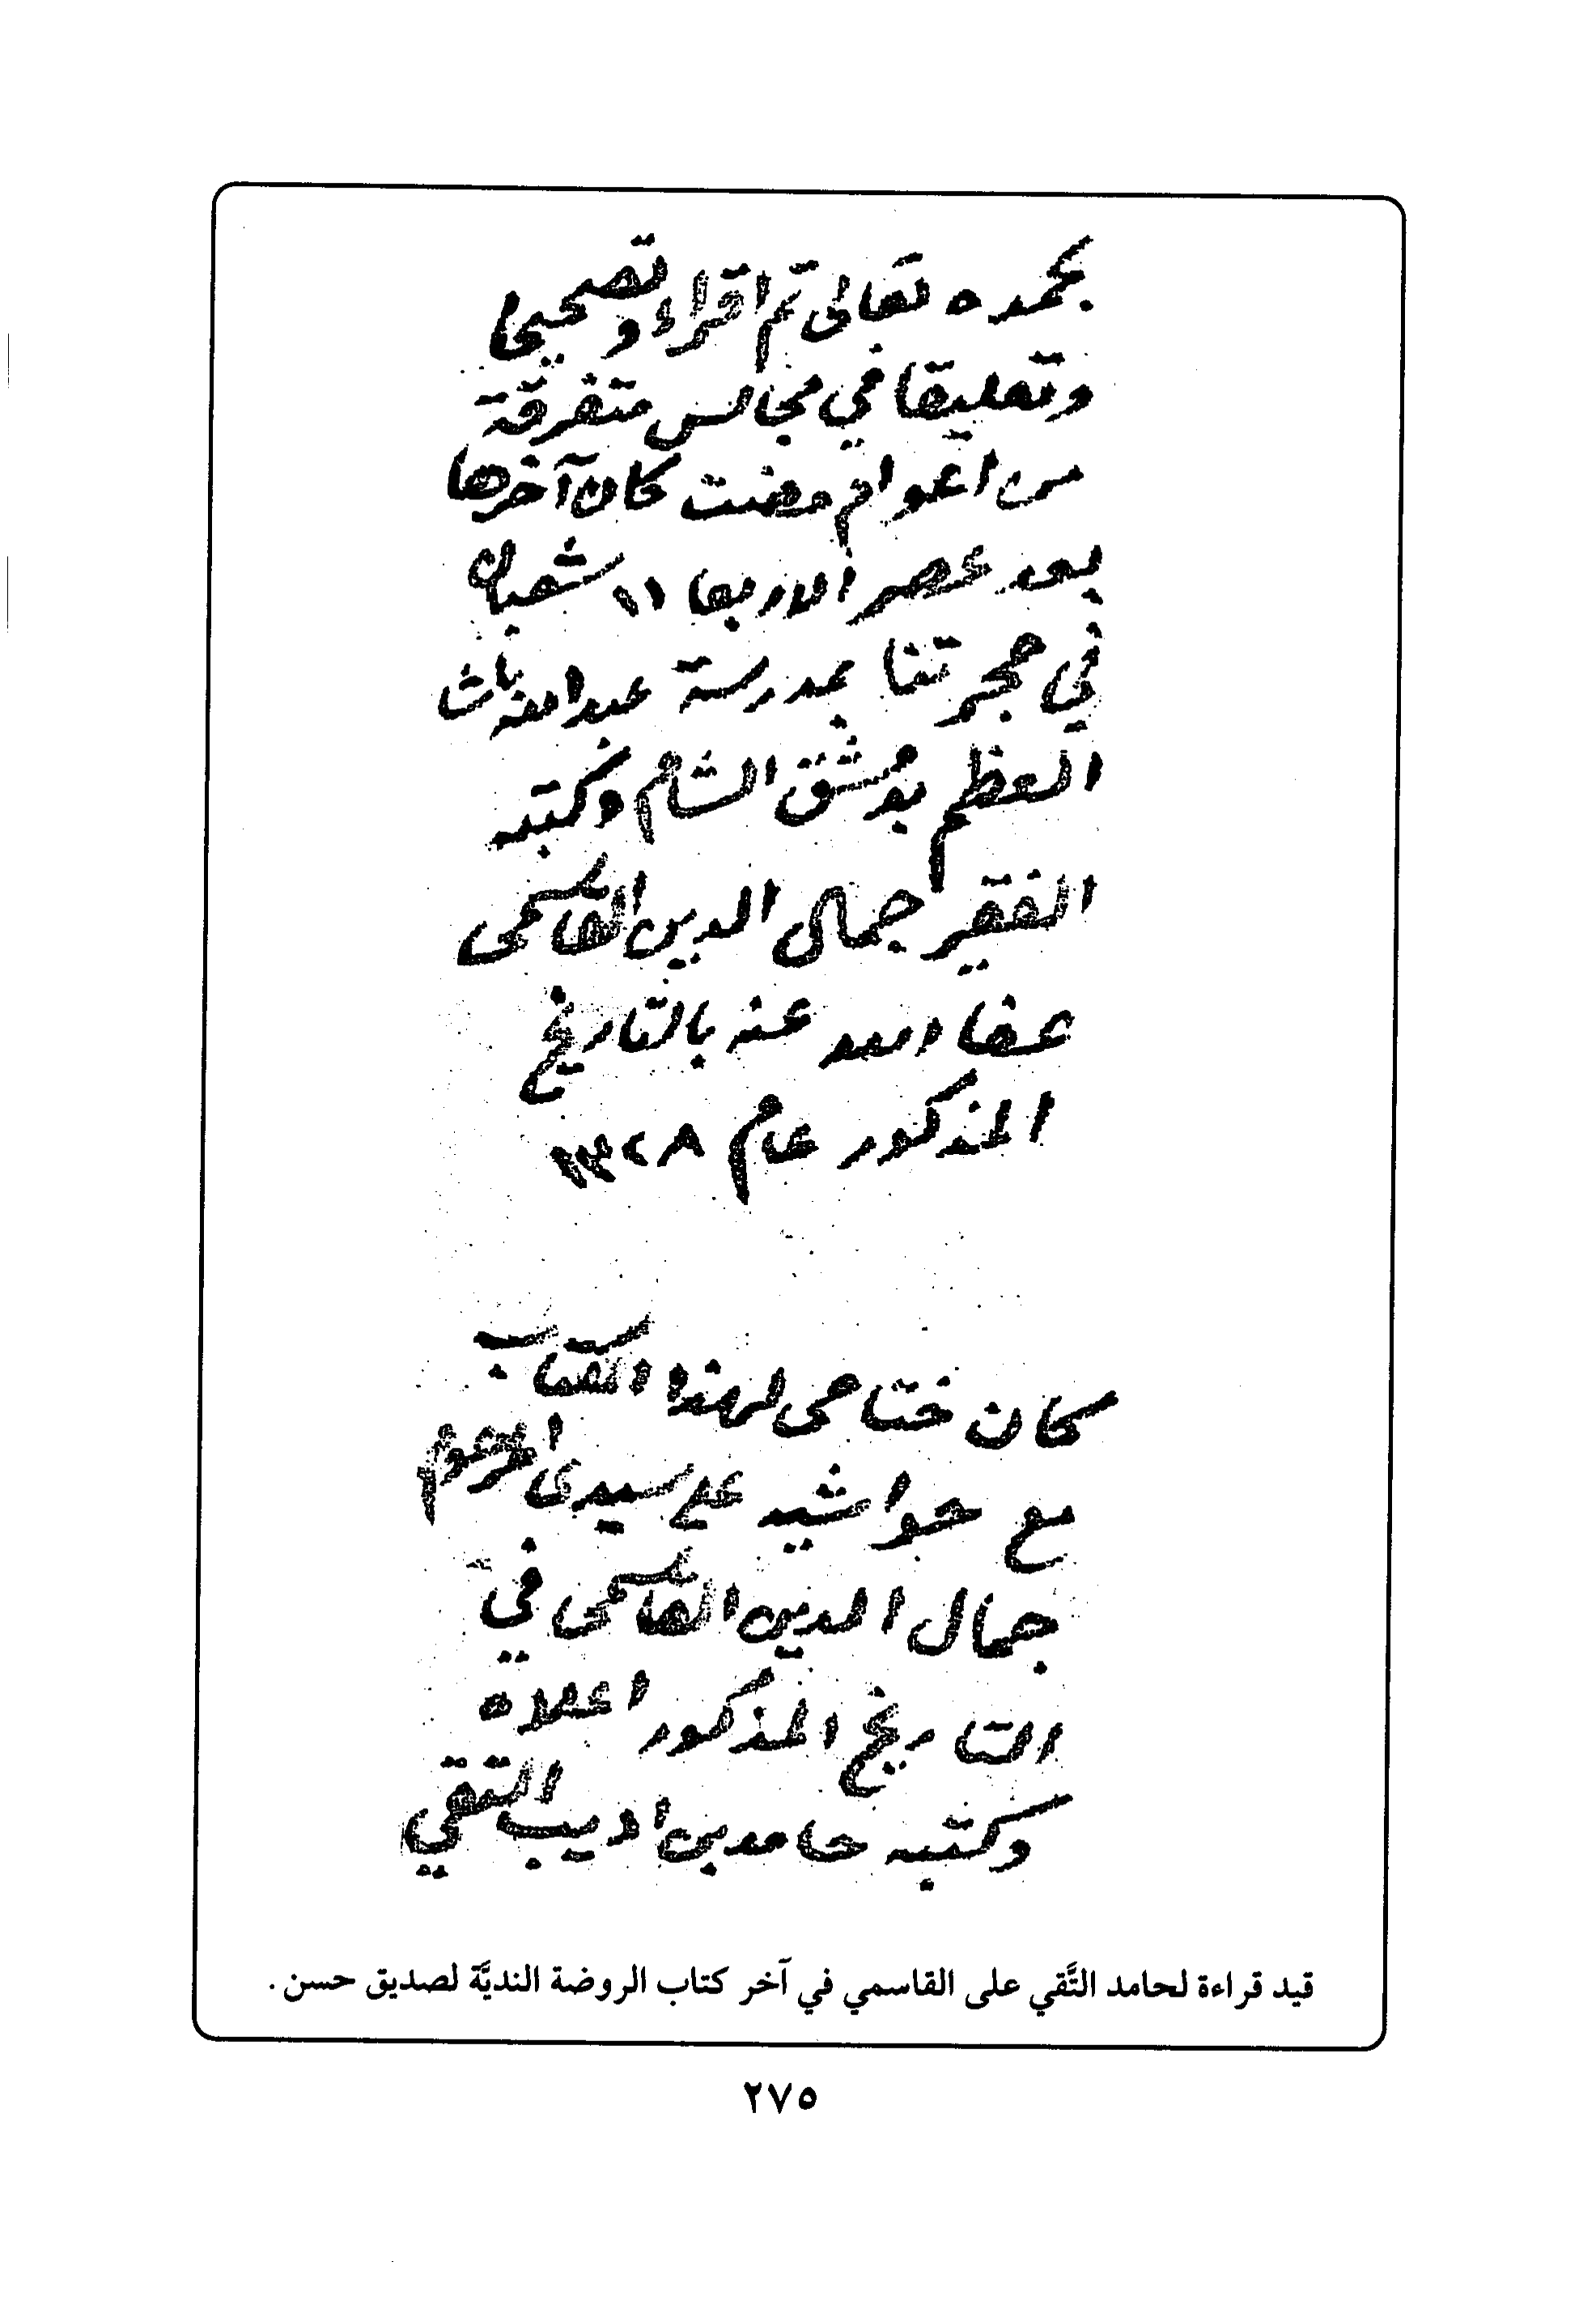 بحمده تعالى تم اقراء وتصحيحا
وتعليقا في مجالس متفرقة
من اعوام مضت كان آخرها
بعد عصر الاربعا ١١ شعبان
في حجرتنا بمدرسة عبدالله باشا
العظم بدمشق الشام وكتبه
الفقير جمال الدين القاسمى
عفا الله عنه بالتاريخ
المذكور عام ١٣٢٨
كان ختامى لهذا الكتاب
مع حواشيه على سيدى المرحوم
جمال الدين القاسمى في
التاريخ المذكور اعلاه
وكتبه حامد بن اديب التقي
قيد قراءة لحامد التَّقي على القاسمي في آخر كتاب الروضة النديَّة لصديق حسن .
٢٧٥